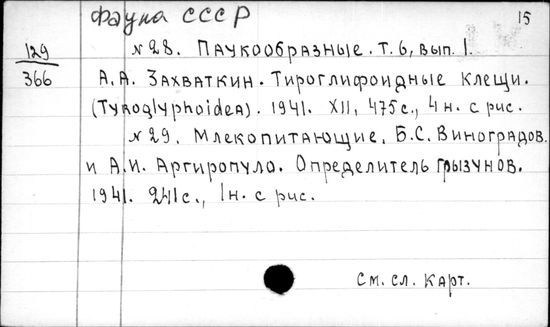 Фауна СССР
15
129
366
№ 28. Паукообразные. Т. 6, вып. 1.
А.А. Захваткин. Тироглифоидные клещи.
(Tyroglyphoidea). 1941. XII, 475 с., 4 н. с рис.
№ 29. Млекопитающие. Б.С. Виноградов
и А.И. Аргиропуло. Определитель грызунов.
1941. 241 с., 1 н. с рис.
См. сл. карт.